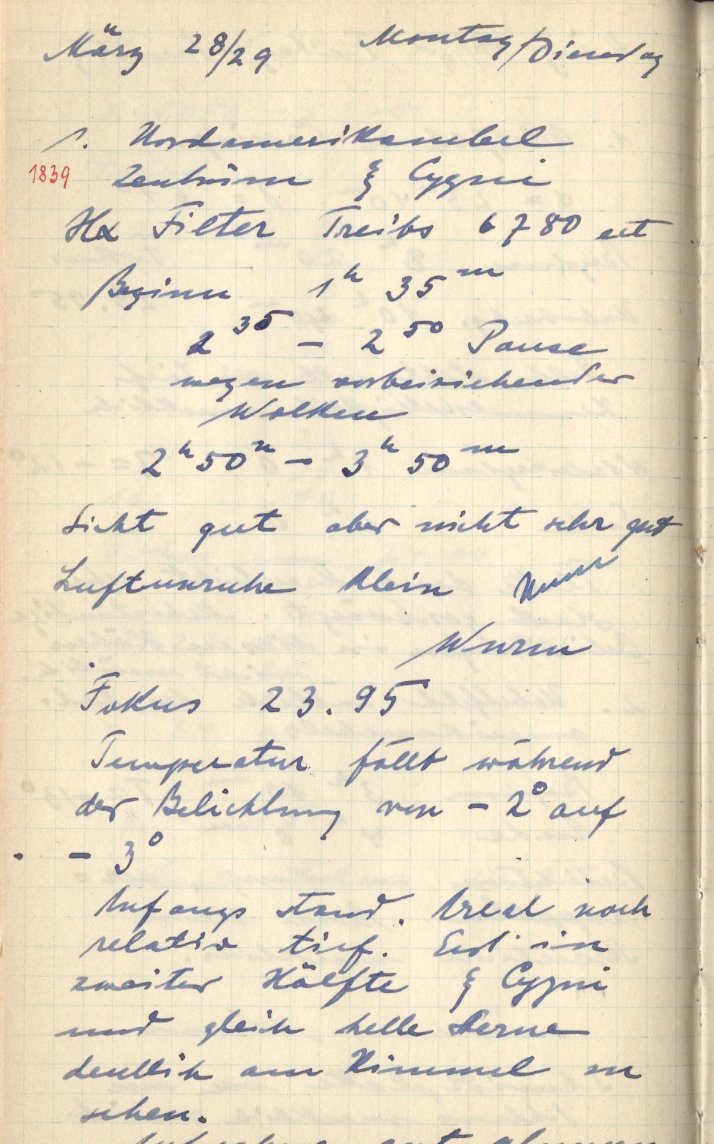 März 28/29 Montag/Dienstag
1. Nordamerikanebel
1839 Zentrum ξ Cygni
Hα Filter Treibs 6780 
Beginn 1h 35m
2 35 – 2 50 Pause
wegen vorbeiziehender
Wolken
2h 50m – 3h 50m
Sicht gut aber nicht sehr gut
Luftunruhe klein
Wurm
Fokus 23.95
Temperatur fällt während
der Belichtung von – 2° auf
– 3°
Anfangs stand Areal noch
relativ tief. Erst in
zweiter Hälfte ξ Cygni
und gleich helle Sterne
deutlich am Himmel zu
sehen.